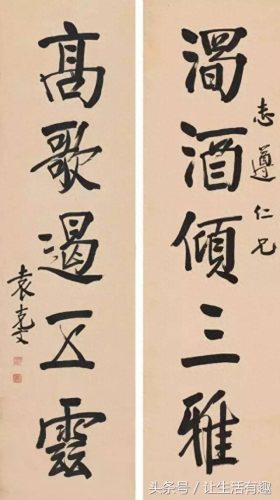 志遵仁兄
濁酒傾三雅
高歌遏五雲
袁克文
头条号 / 让生活有趣